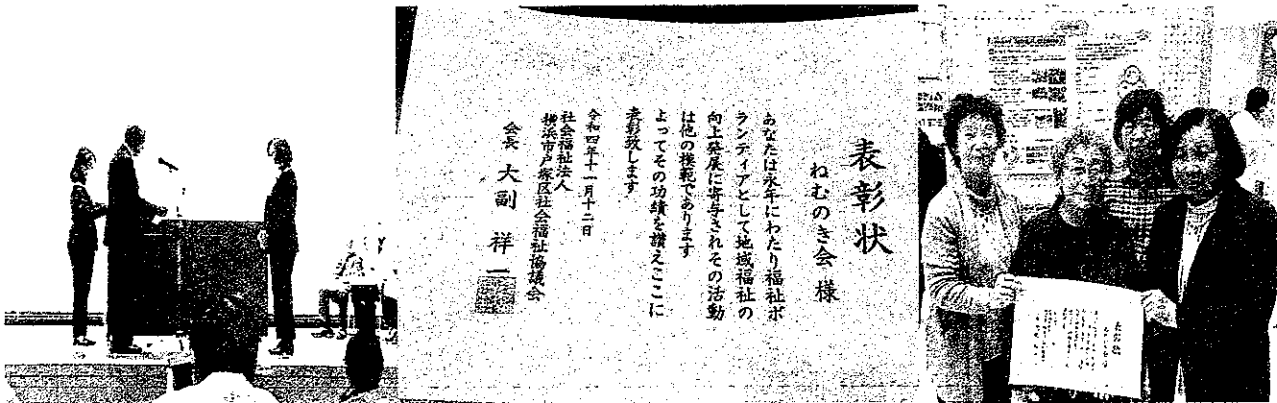 表彰状
ねむのき会 様
あなたは永年にわたり福祉ボ
ランティアとして地域福祉の
向上発展に寄与されその活動
は他の模範であります
よってその功績を讃えここに
表彰致します
令和四年十一月十二日
社会福祉法人
横浜市戸塚区社会福祉協議会
会長 大副 祥一
表彰状